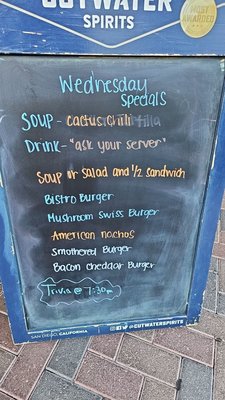 CUTWATER
SPIRITS
MOST
AWARDED
Wednesday
Specials
SOUP - cactus chili
Drink - "ask your server"
SOUP or Salad and 1/2 sandwich
Bistro Burger
Mushroom Swiss Burger
American nachos
Smothered Burger
Bacon cheddar Burger
Trivia @ 7:30pm
SAN DIEGO, CALIFORNIA
CUTWATER SPIRITS